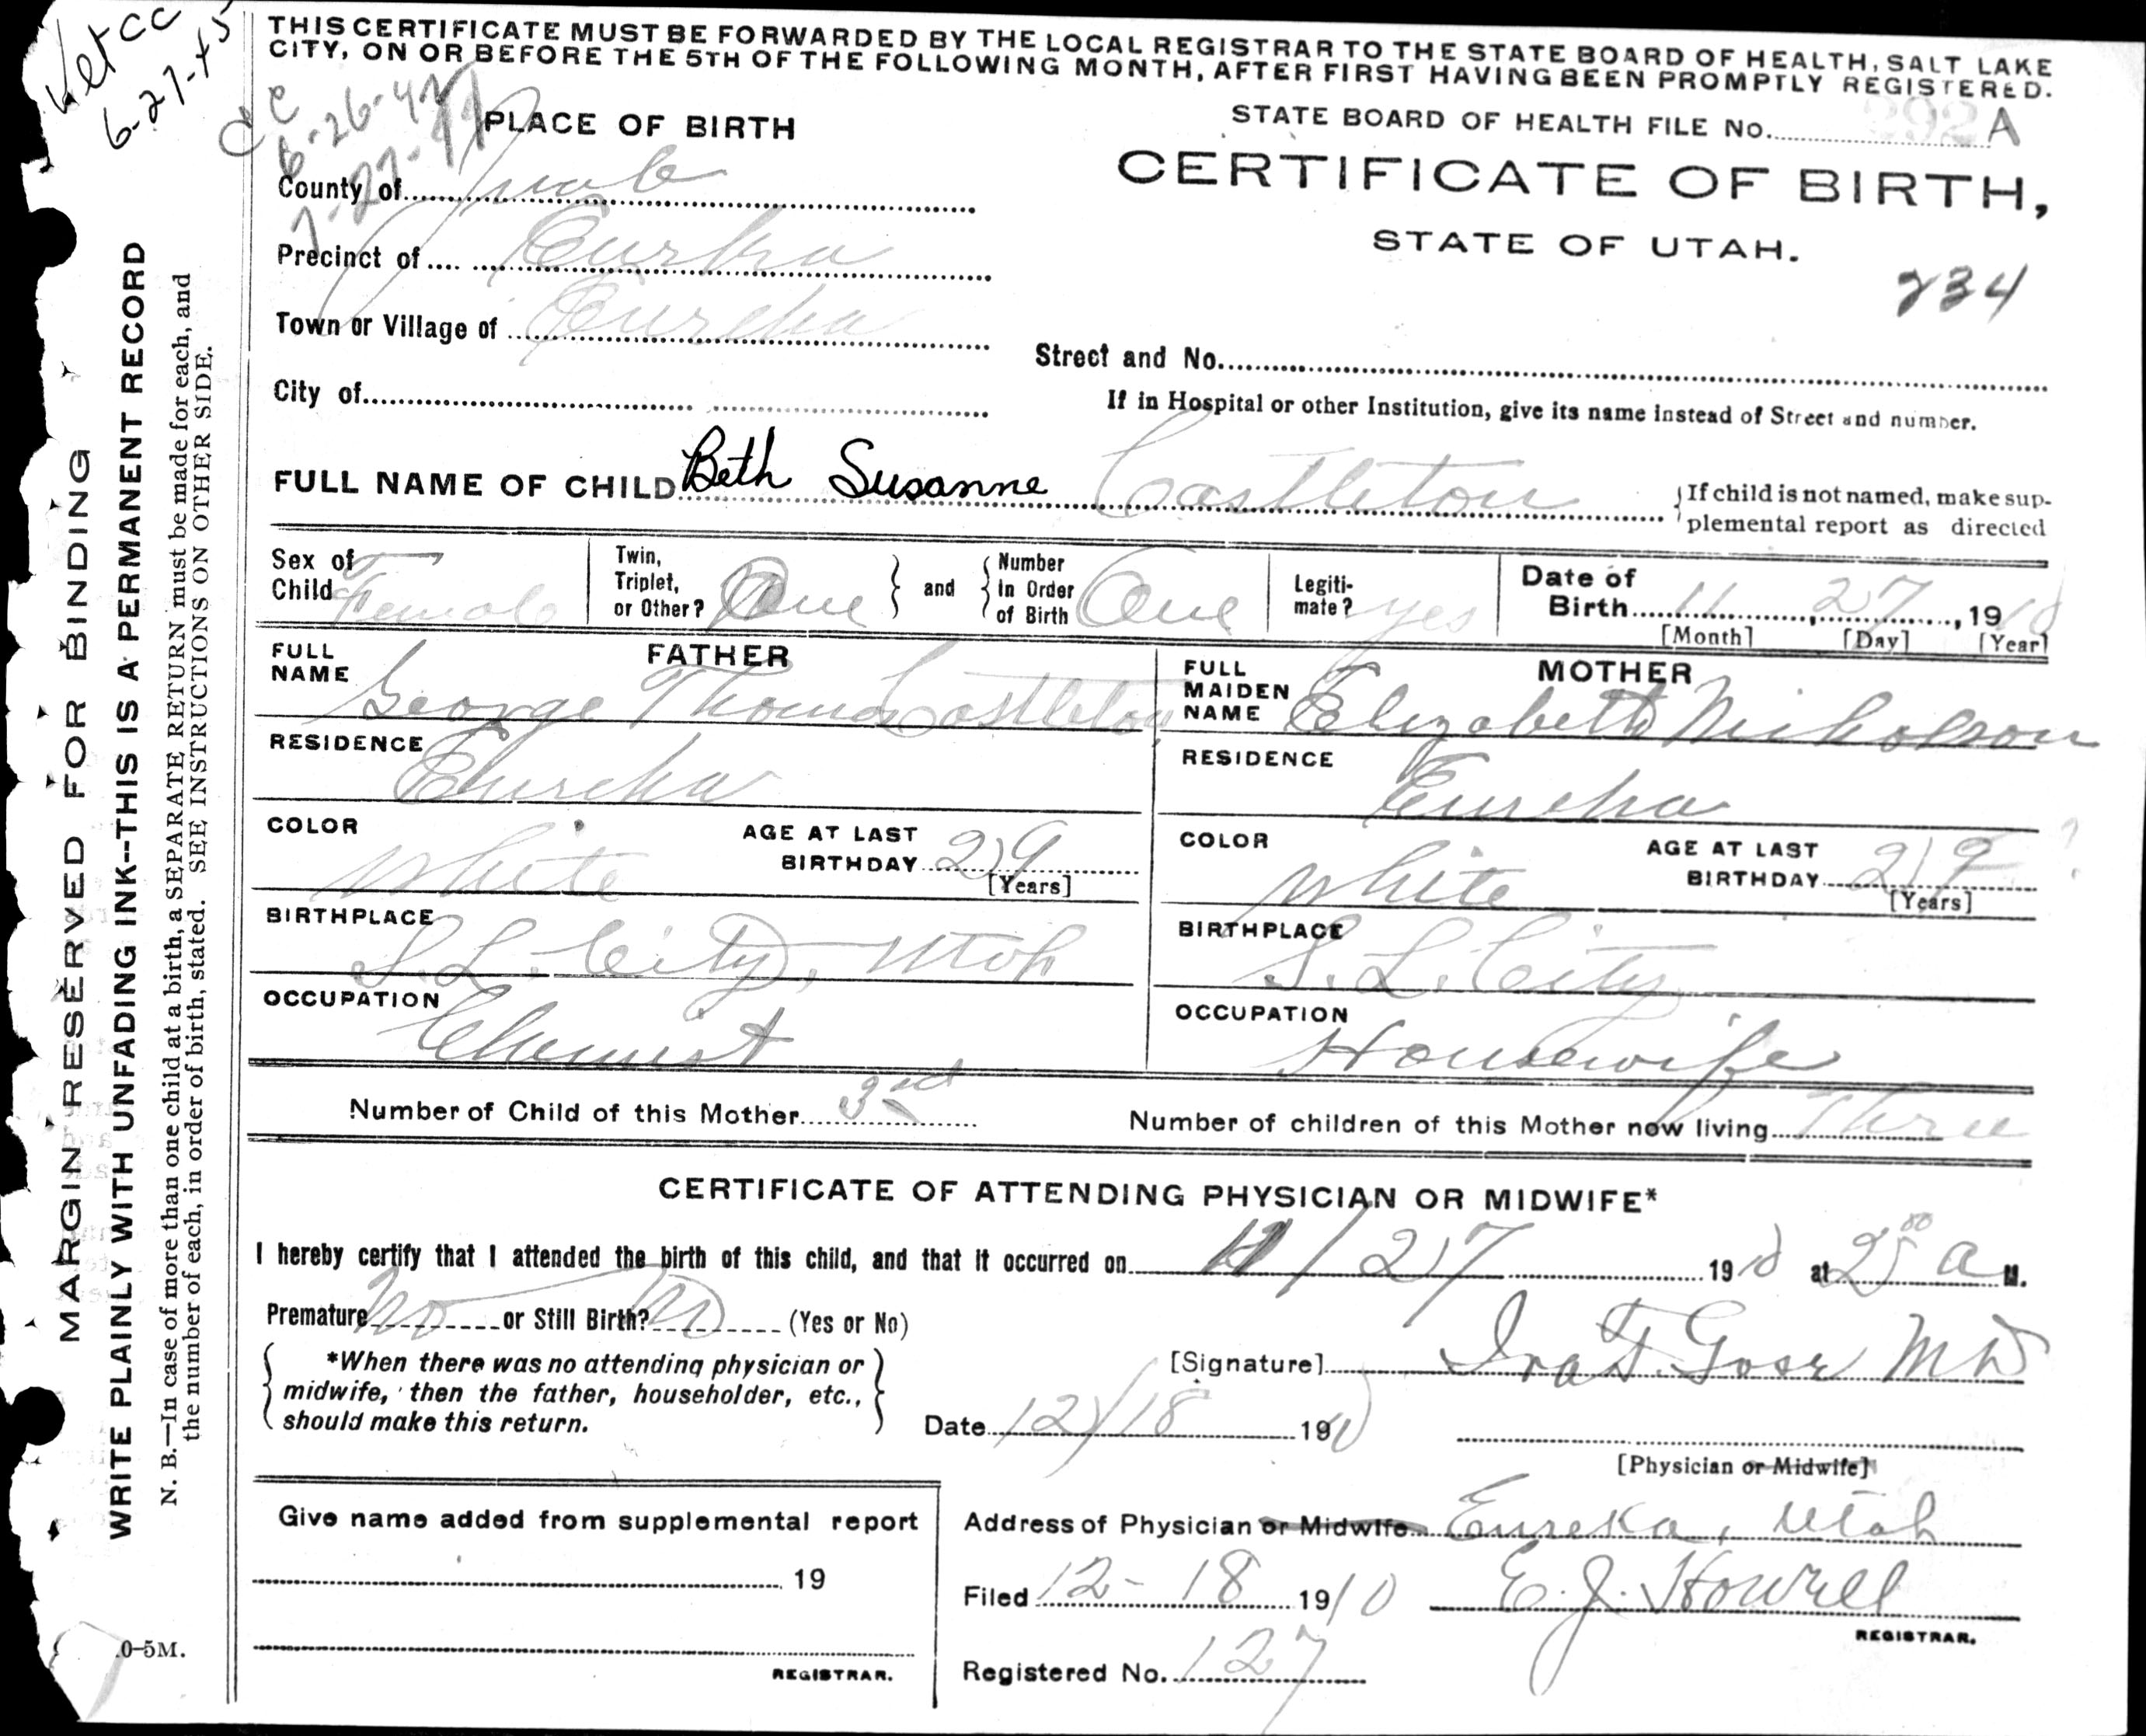 6-27-45
THIS CERTIFICATE MUST BE FORWARDED BY THE LOCAL REGISTRAR TO THE STATE BOARD OF HEALTH, SALT LAKE
CITY, ON OR BEFORE THE 5TH OF THE FOLLOWING MONTH, AFTER FIRST HAVING BEEN PROMPTLY REGISTERED.
STATE BOARD OF HEALTH FILE No. 292 A
CERTIFICATE OF BIRTH,
STATE OF UTAH.
234
PLACE OF BIRTH
County of Juab
Precinct of Eureka
Town or Village of Eureka
Street and No.
City of
If in Hospital or other Institution, give its name instead of Street and number.
FULL NAME OF CHILD Beth Susanne Castleton
If child is not named, make sup-
plemental report as directed
Sex of Child Female
Twin, Triplet, or Other? One
and
Number In Order of Birth One
Legiti-mate? yes
Date of Birth 11, 27, 1910
[Month] [Day] [Year]
FATHER
FULL NAME George Thomas Castleton
RESIDENCE Eureka
COLOR White
AGE AT LAST BIRTHDAY 29
[Years]
BIRTHPLACE S. L. City, Utah
OCCUPATION Chemist
MOTHER
FULL MAIDEN NAME Elizabeth Nicholson
RESIDENCE Eureka
COLOR White
AGE AT LAST BIRTHDAY 29 ?
[Years]
BIRTHPLACE S. L. City
OCCUPATION Housewife
Number of Child of this Mother 3rd
Number of children of this Mother now living Three
CERTIFICATE OF ATTENDING PHYSICIAN OR MIDWIFE*
I hereby certify that I attended the birth of this child, and that it occurred on 11/27 1910 at 2 00 a M.
Premature No or Still Birth? No (Yes or No)
*When there was no attending physician or
midwife, then the father, householder, etc.,
should make this return.
[Signature] MD
Date 12/18 1910
[Physician or Midwife]
Give name added from supplemental report
19
REGISTRAR.
Address of Physician or Midwife Eureka, Utah
Filed 12-18 1910 E. J. Howell
REGISTRAR.
Registered No. 127
MARGIN RESERVED FOR BINDING
WRITE PLAINLY WITH UNFADING INK--THIS IS A PERMANENT RECORD
N. B.—In case of more than one child at a birth, a SEPARATE RETURN must be made for each, and
the number of each, in order of birth, stated. SEE INSTRUCTIONS ON OTHER SIDE.
0-5M.